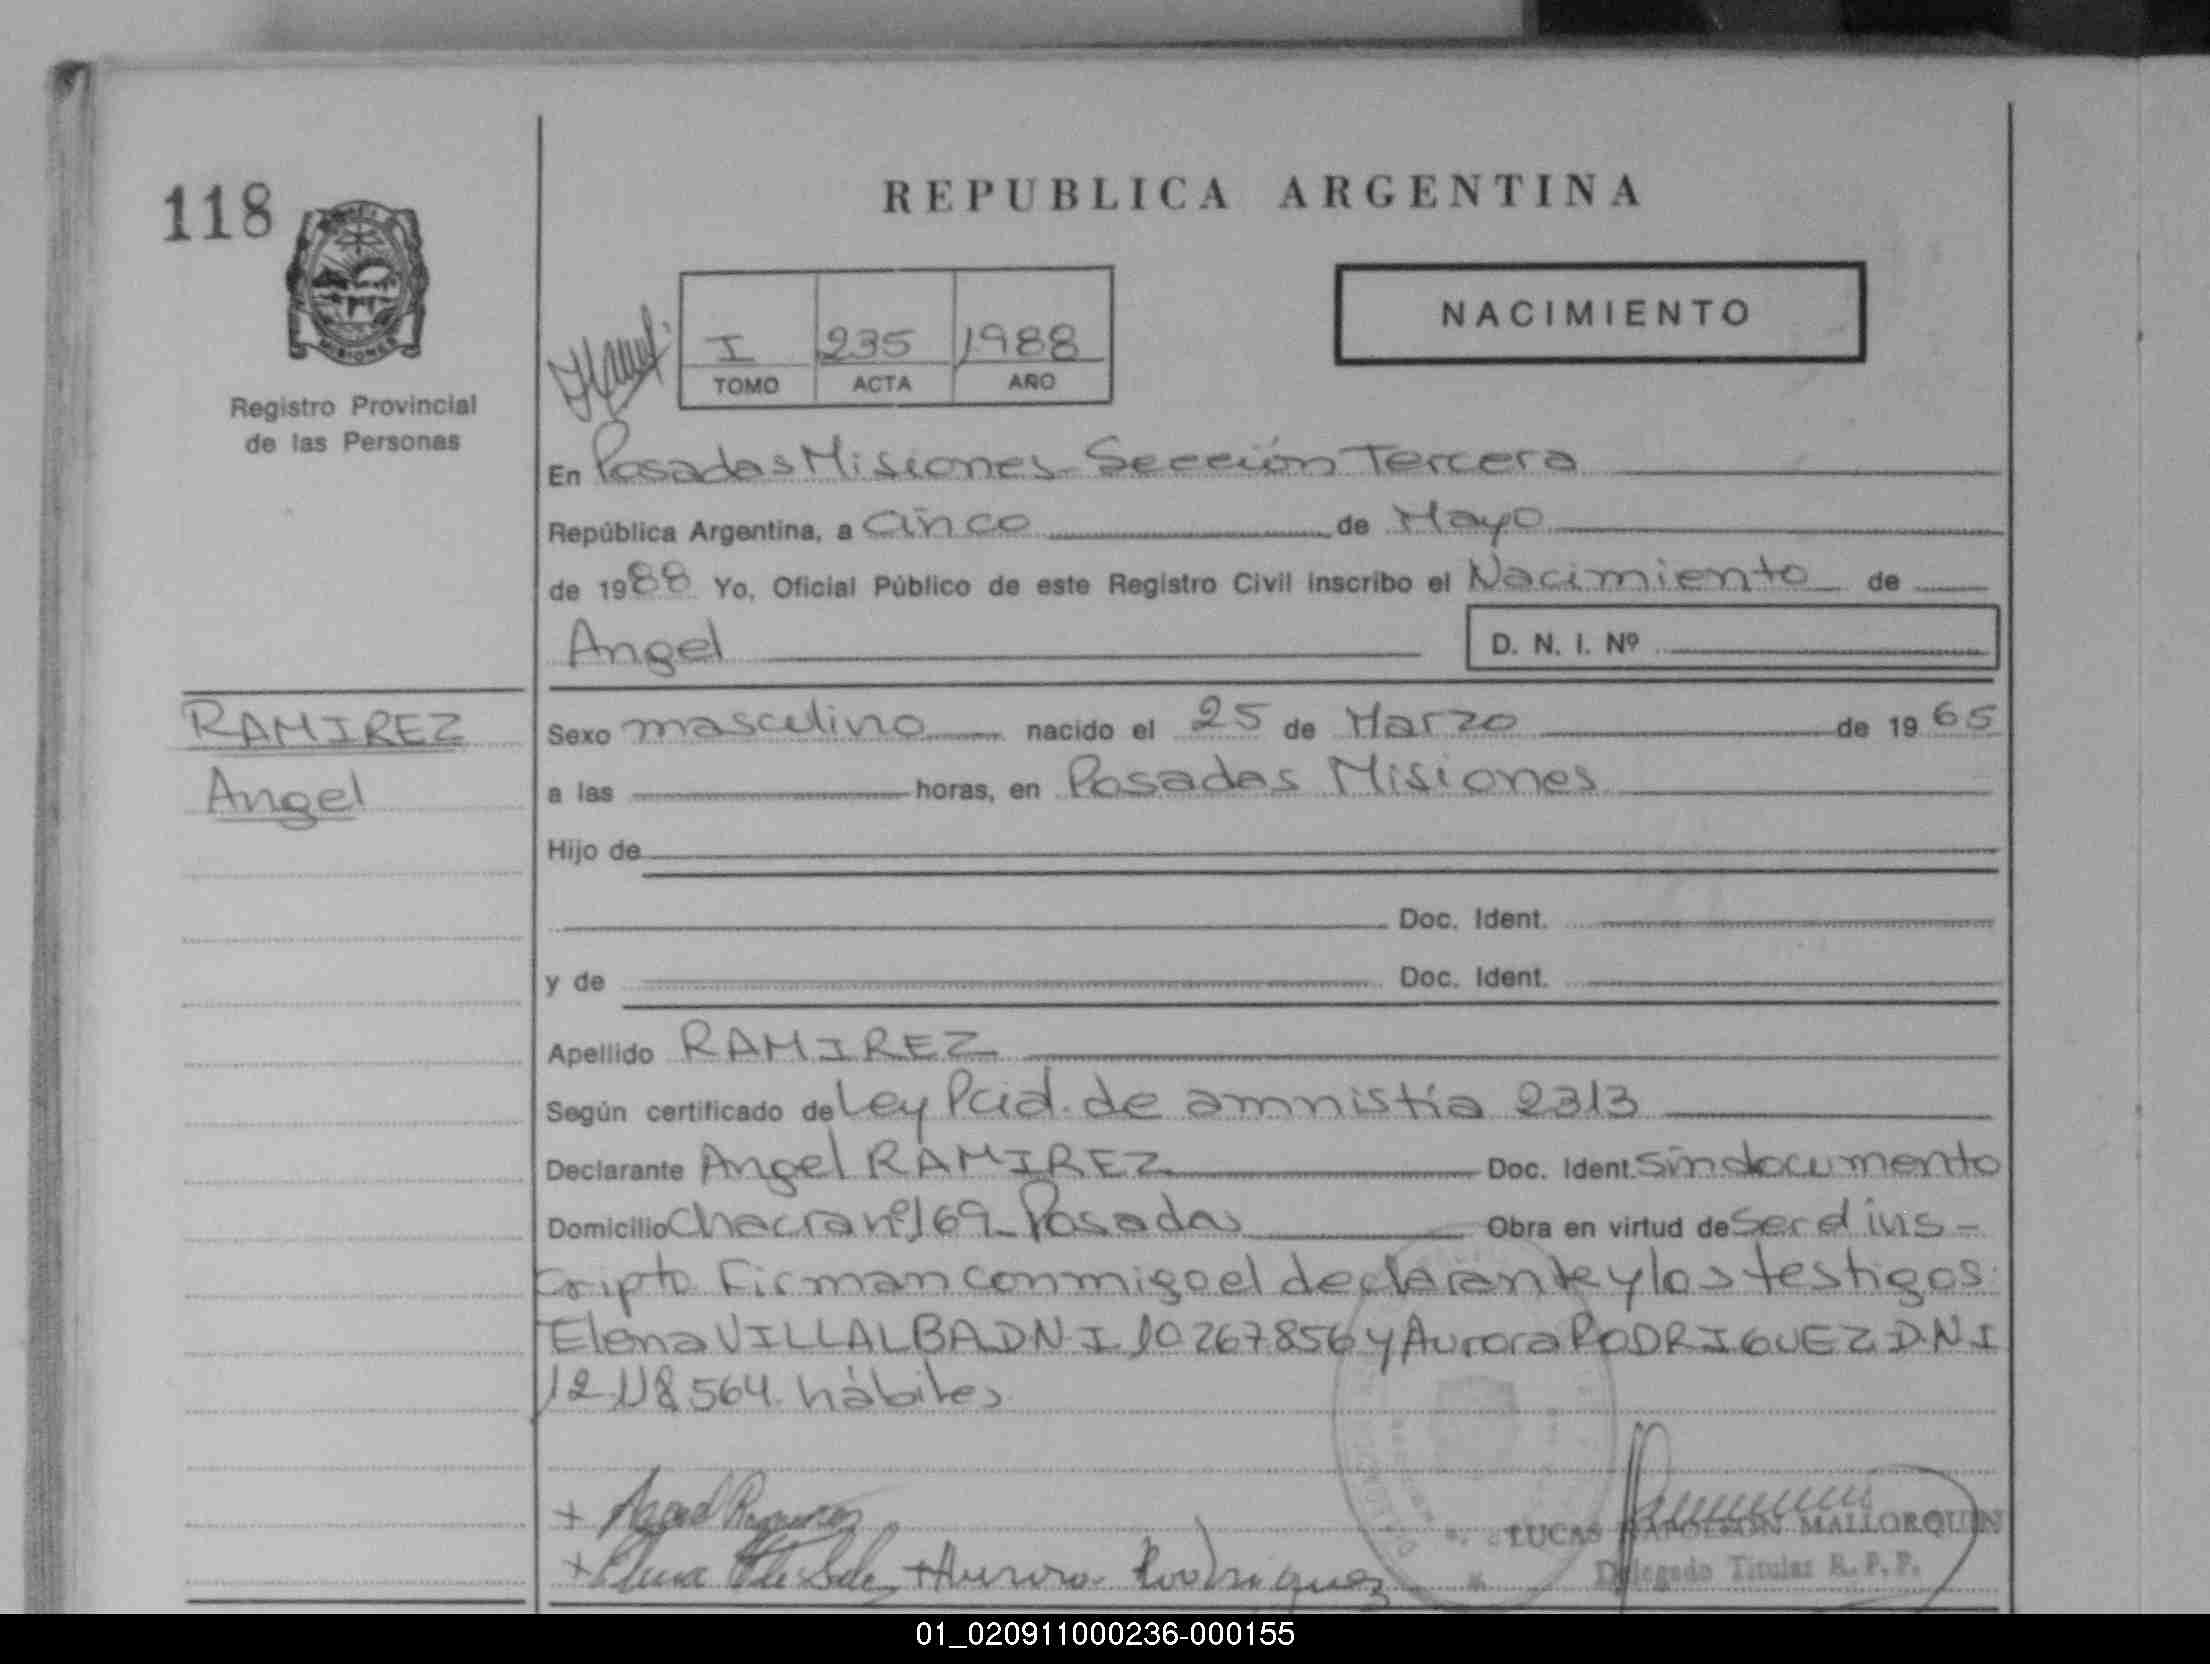 118
REPUBLICA ARGENTINA
NACIMIENTO
I 235 1988
TOMO ACTA AÑO
MISIONES
Registro Provincial
de las Personas
En Posadas Misiones Sección Tercera
República Argentina, a cinco de Mayo
de 1988 Yo, Oficial Público de este Registro Civil inscribo el Nacimiento de
Angel D. N. I. Nº
RAMIREZ
Angel
Sexo masculino nacido el 25 de Marzo de 1965
a las horas, en Posadas Misiones
Hijo de
Doc. Ident.
y de Doc. Ident.
Apellido RAMIREZ
Según certificado de Ley Pcial. de amnistía 2313
Declarante Angel RAMIREZ Doc. Ident. sin documento
Domicilio Chacra nº 169 Posadas Obra en virtud de ser el ins-
cripto Firman conmigo el declarante y los testigos
Elena VILLALBA D.N.I. 10267856 y Aurora RODRIGUEZ D.N.I
12.118.564 hábiles
+ Angel Ramirez
+ Elena + Aurora Rodriguez
LUCAS NAPOLEON MALLORQUIN
Delegado Titular R. P. P.
01_020911000236-000155